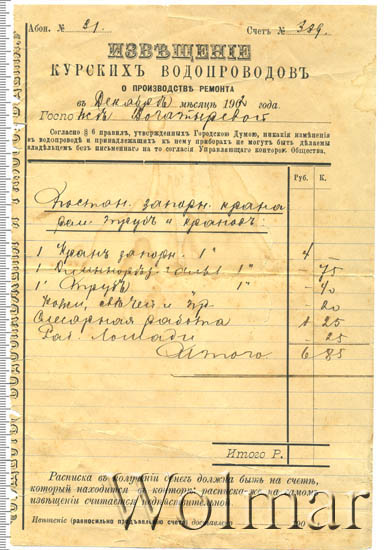 Абон. № 21. Счетъ № 329.
ИЗВѢЩЕНІЕ
КУРСКИХЪ ВОДОПРОВОДОВЪ
О ПРОИЗВОДСТВѢ РЕМОНТА
въ Декабрѣ мѣсяцѣ 190 года.
Госпо жѣ Богатыревой
Согласно § 6 правилъ, утвержденныхъ Городскою Думою, никакія измѣненія
въ водопроводѣ и принадлежащихъ къ нему приборахъ не могутъ быть дѣлаемы
владѣльцемъ безъ письменнаго на то согласія Управляющаго конторою Общества.
Руб. К.
Постан. запорн. крана
рем. трубъ и крановъ:
1 Кранъ запорн. 1" 4 -
1 1" - 75
1' Трубъ 1" - 40
и пр. - 20
Слесарная работа 1 25
Раб. Лошади - 25
Итого 6 85
Итого Р.
Расписка въ полученіи денегъ должна быть на счетѣ,
который находится въ конторѣ; расписка-же на самомъ
извѣщеніи считается недѣйствительною.
Извѣщеніе (равносильно предъявленію счета) доставлено 190
Wolmar